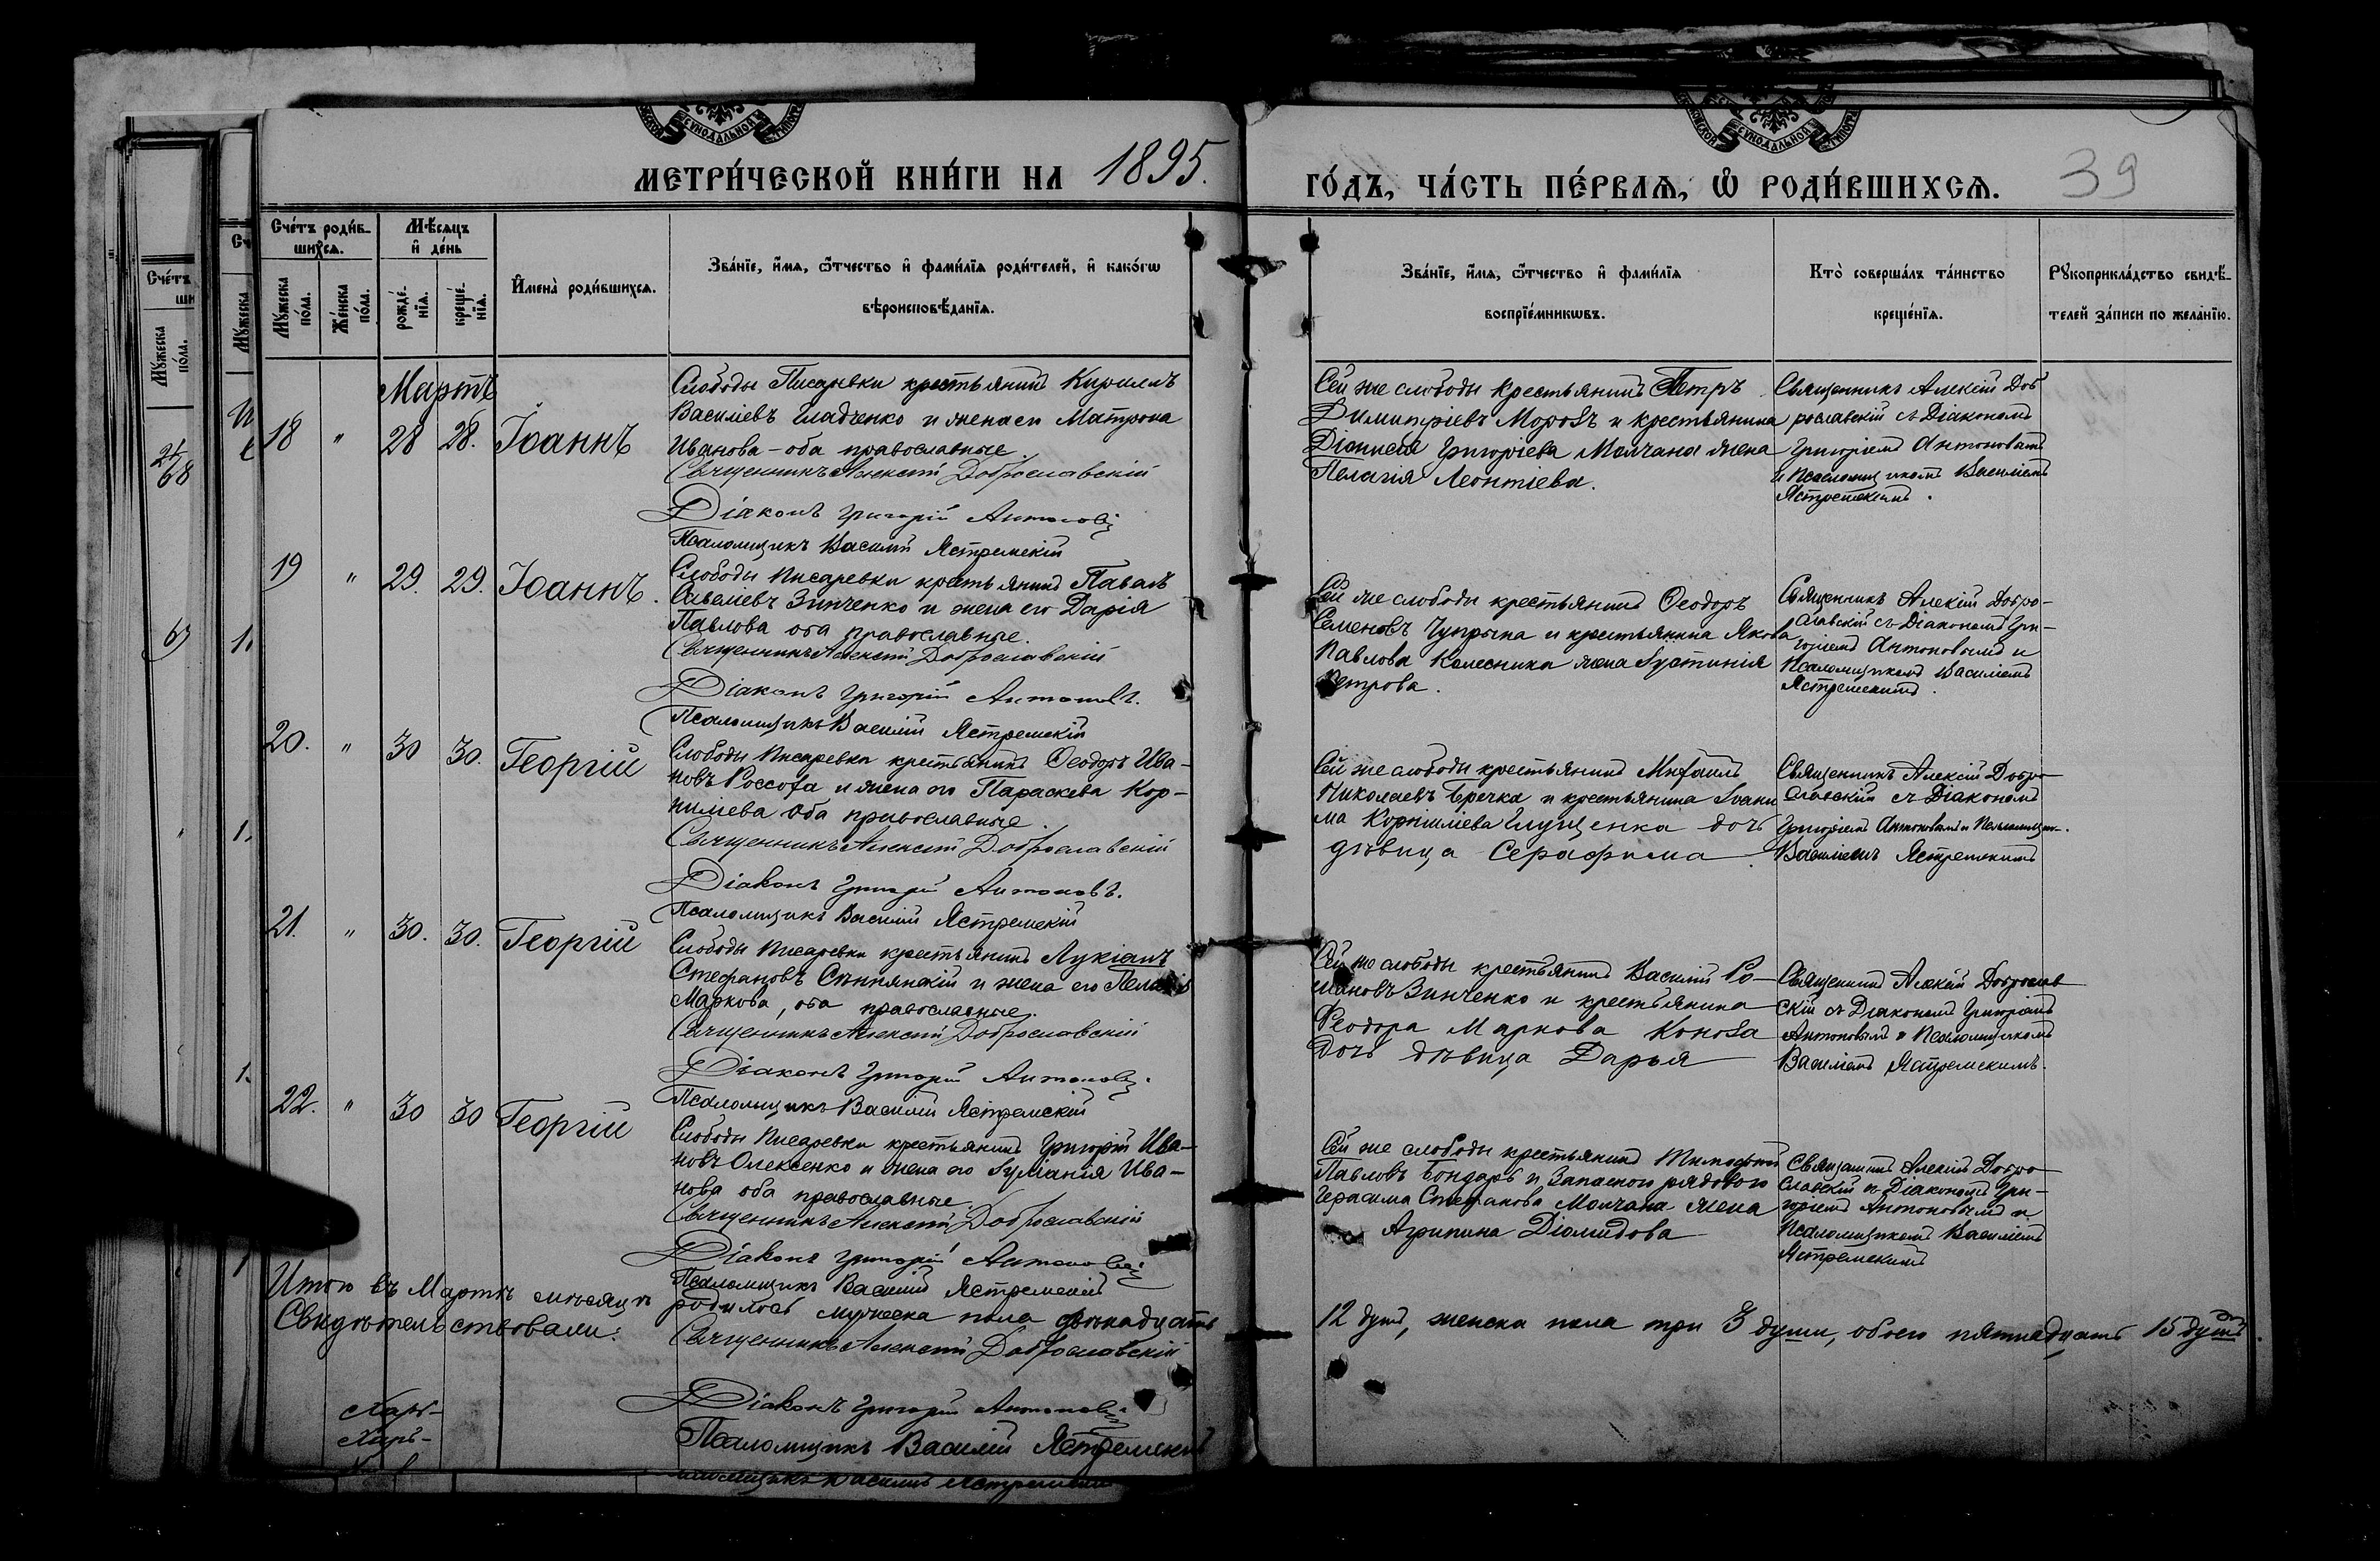 МЕТРИ́ЧЕСКОЙ КНИ́ГИ НА 1895.
ГО́ДЪ, ЧА́СТЬ ПЕ́РВАѦ, Ѡ҆ РОДИ́ВШИХСѦ. 39
Сче́тъ роди́в-
шихсѧ.
Мѣ́сѧцъ
и҆ де́нь
Мꙋ́жеска по́ла.
Же́нска по́ла.
рожде́-
нїѧ.
креще́-
нїѧ.
И҆мена̀ роди́вшихсѧ.
Зва́нїе, и҆́мѧ, ѻ҆́тчество и҆ фами́лїѧ роди́телей, и҆ како́гѡ
вѣроисповѣ́данїѧ.
Зва́нїе, и҆́мѧ, ѻ҆́тчество и҆ фами́лїѧ
воспрїе́мникѡвъ.
Кто̀ соверша́лъ та́инство
креще́нїѧ.
Рꙋкоприкла́дство свидѣ́-
телей за́писи по жела́нїю.
Мартъ
18 " 28 28. Іоаннъ
Слободы Писаревки крестьянинъ Кириллъ
Василіевъ Гладченко и жена его Матрона
Иванова - оба православные.
Священникъ Алексій Доброславскій
Діаконъ Григорій Антоновъ
Псаломщикъ Василій Ястремскій
Сей же слободы крестьянинъ Петръ
Димитріевъ Морозъ и крестьянина
Діонисія Григоріева Молчана жена
Пелагія Леонтіева.
Священникъ Алексій Доб
рославскій съ Діакономъ
Григоріемъ Антоновымъ
и Псаломщикомъ Василіемъ
Ястремскимъ.
19 " 29. 29. Іоаннъ.
Слободы Писаревки крестьянинъ Павелъ
Савеліевъ Зинченко и жена его Дарія
Павлова оба православные.
Священникъ Алексій Доброславскій
Діаконъ Григорій Антоновъ.
Псаломщикъ Василій Ястремскій
Сей же слободы крестьянинъ Ѳеодоръ
Семеновъ Чупрына и крестьянина Якова
Павлова Колесника жена Іустинія
Петрова.
Священникъ Алексій Добро-
славскій съ Діакономъ Гри-
горіемъ Антоновымъ и
Псаломщикомъ Василіемъ
Ястремскимъ.
20. " 30 30. Георгій
Слободы Писаревки крестьянинъ Ѳеодоръ Ива-
новъ Россоха и жена его Параскева Кор-
ниліева оба православные.
Священникъ Алексій Доброславскій
Діаконъ Григорій Антоновъ.
Псаломщикъ Василій Ястремскій
Сей же слободы крестьянинъ Михаилъ
Николаевъ Гречка и крестьянина
Корниліева Глущенка дочь
дѣвица Серафима
Священникъ Алексій Добро-
славскій съ Діакономъ
Григоріемъ Антоновымъ и
Василіемъ Ястремскимъ
21. " 30. 30. Георгій
Слободы Писаревки крестьянинъ Лукіанъ
Стефановъ и жена его
Маркова, оба православные.
Священникъ Алексій Доброславскій
Діаконъ Григорій Антоновъ.
Псаломщикъ Василій Ястремскій
Сей же слободы крестьянинъ Василій Ро-
мановъ Зинченко и крестьянина
Ѳеодора Маркова Коноза
дочь дѣвица Дарья
Священникъ Алексій Доброслав
скій съ Діакономъ Григоріемъ
Антоновымъ и Псаломщикомъ
Василіемъ Ястремскимъ.
22. " 30 30 Георгій
Слободы Писаревки крестьянинъ Григорій Ива-
новъ Олексенко и жена его Іуліанія Ива-
нова оба православные.
Священникъ Алексій Доброславскій
Діаконъ Григорій Антоновъ
Псаломщикъ Василій Ястремскій
Сей же слободы крестьянинъ Тимофей
Павловъ Бондарь и запасного рядового
Герасима Стефанова Молчана жена
Агрипина Діомидова
Священникъ Алексій Добро
славскій съ Діакономъ Гри-
горіемъ Антоновымъ и
Псаломщикомъ Василіемъ
Ястремскимъ
Итого въ Мартѣ мѣсяцѣ родилось мужеска пола двѣнадцать
12 душъ, женска пола три 3 души, обоего пятнадцать 15 душъ.
Свидѣтельствовали:
Священникъ Алексій Доброславскій
Діаконъ Григорій Антоновъ
Псаломщикъ Василій Ястремскій